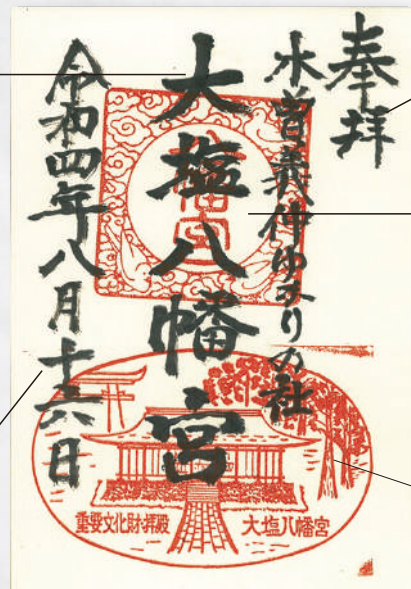 奉拝
木曽義仲ゆかりの社
大塩八幡宮
八幡宮
令和四年八月十六日
重要文化財拝殿
大塩八幡宮